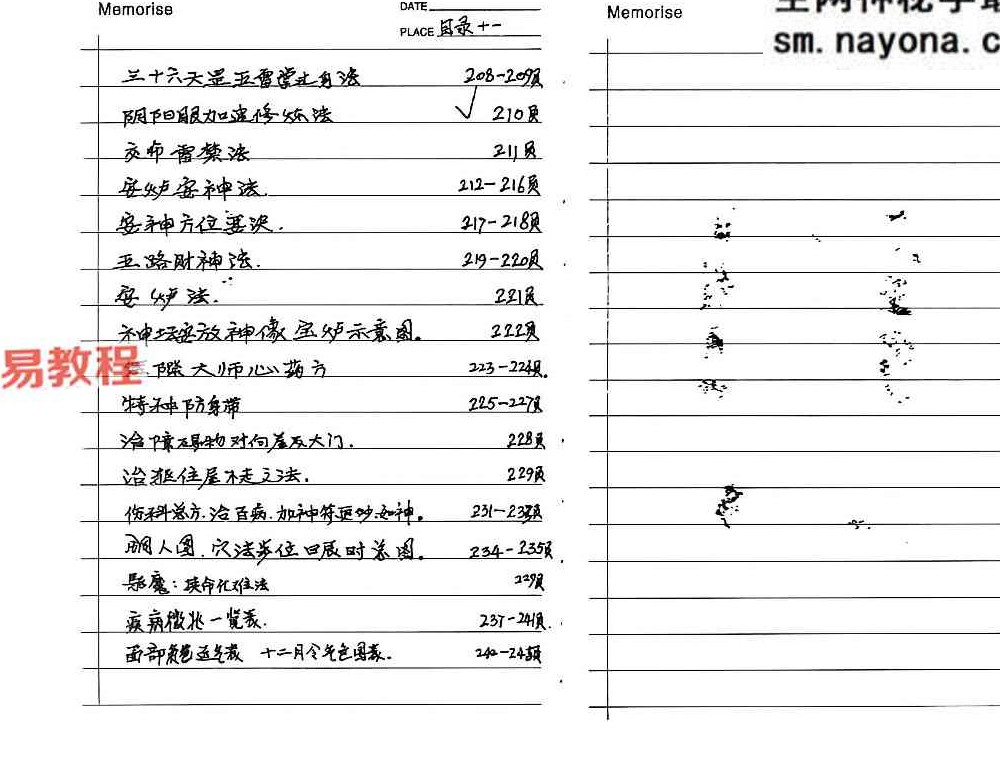 Memorise
DATE
PLACE 目录十一
三十六天罡五雷掌止身法 208-209页
阴阳眼加速修炼法 210页
交布雷禁法 211页
安炉安神法. 212-216页
安神方位要决. 217-218页
五路财神法. 219-220页
安炉法. 221页
神坛安放神像宝炉示意图。 222页
大师心药方 223-224页.
特神防身带 225-227页
治障碍物对向屋及大门. 228页
治 住屋不走之法. 229页
伤科总方.治百病.加神符更妙如神。 231-233页
铜人图.穴法部位日辰时总图。 234-235页
驱魔：挟命化难法 229页
疾病徵兆一览表. 237-241页.
面部 十二月令气色图表. 242-245页
Memorise
全网神秘学最
sm.nayona.c
易教程